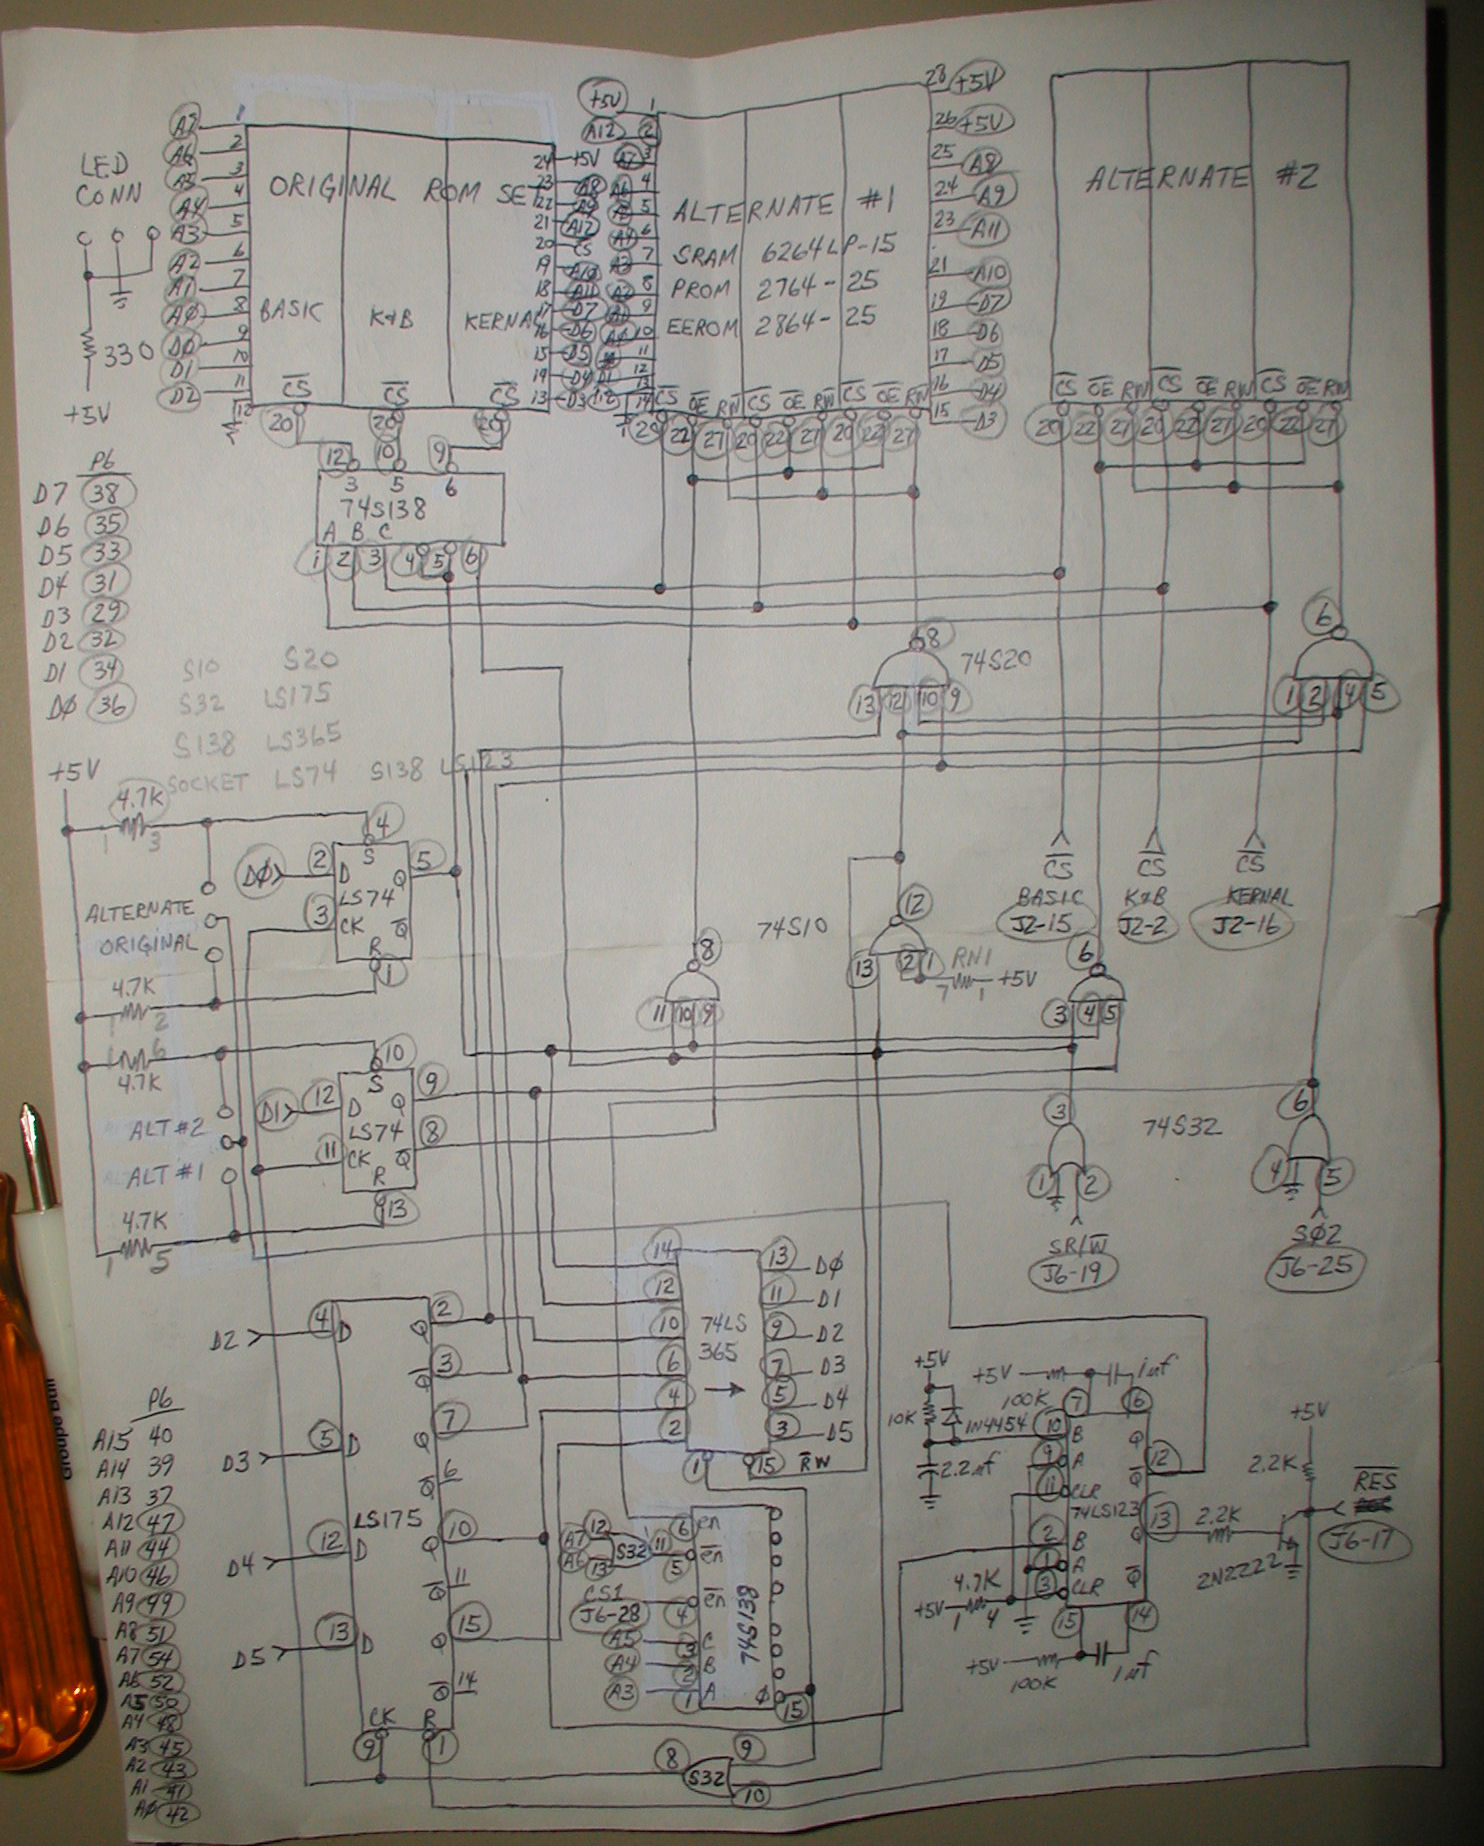 LED
CONN
330
+5V
A7 1
A6 2
A5 3
A4 4
A3 5
A2 6
A1 7
A0 8
D0 9
D1 10
D2 11
12
ORIGINAL ROM SET
BASIC
K&B
KERNAL
24 +5V
23 A8
22 A9
21 A12
20 CS
19 A10
18 A11
17 D7
16 D6
15 D5
14 D4
13 D3
CS CS CS
20 20 20
+5V 1
A12 2
A7 3
4
5
6
7
8
9
10
11
12
13
14
ALTERNATE #1
SRAM 6264LP-15
PROM 2764-25
EEROM 2864-25
28 +5V
26 +5V
25 A8
24 A9
23 A11
21 A10
19 D7
18 D6
17 D5
16 D4
15 D3
CS OE RW CS OE RW CS OE RW
20 22 27 20 22 27 20 22 27
ALTERNATE #2
CS OE RW CS OE RW CS OE RW
20 22 27 20 22 27 20 22 27
12 10 9
3 5 6
74S138
A B C
1 2 3 4 5 6
P6
D7 38
D6 35
D5 33
D4 31
D3 29
D2 32
D1 34
D0 36
S10 S20
S32 LS175
S138 LS365
SOCKET LS74 S138 LS123
8
74S20
13 12 10 9
6
1 2 4 5
+5V
4.7K
1 3
4
S
D0 2 D Q 5
LS74
3 CK Q
R
1
ALTERNATE
ORIGINAL
4.7K
1 2
1 6
4.7K
10
S
D1 12 D Q 9
LS74
11 CK Q 8
R
13
ALT #2
ALT #1
4.7K
1 5
74S10
8
11 10 9
12
13 2 1
RN1
7 1 +5V
6
3 4 5
CS CS CS
BASIC K&B KERNAL
J2-15 J2-2 J2-16
3
1 2
74S32
6
4 5
SR/W
J6-19
SØ2
J6-25
14 13 D0
12 11 D1
10 9 D2
6 7 D3
4 5 D4
2 3 D5
74LS
365
1 15 RW
D2 4 D Q 2
Q 3
D3 5 D Q 7
Q 6
LS175
D4 12 D Q 10
Q 11
D5 13 D Q 15
Q 14
CK R
9 1
P6
A15 40
A14 39
A13 37
A12 47
A11 44
A10 46
A9 49
A8 51
A7 54
A6 52
A5 50
A4 48
A3 45
A2 43
A1 41
A0 42
A7 12
A6 13
S32 11
6 en
5 en
CS1
J6-28 4 en
A5 3 C
A4 2 B
A3 1 A
74S138
Ø 15
8 S32 9
10
+5V
10K
1N4454
2.2uf
+5V 100K 1uf
7 6
10 B Q
9 A Q 12
11 CLR
74LS123
2 B Q 13
1 A
3 CLR Q
15 14
4.7K
+5V 1 4
+5V 100K 1uf
2.2K
2N2222
+5V
2.2K
RES
J6-17